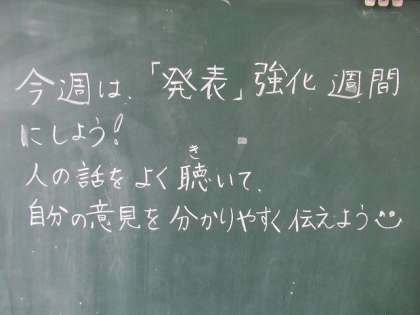 今週は、「発表」強化週間
にしよう!
人の話をよく聴いて、
き
自分の意見を分かりやすく伝えよう